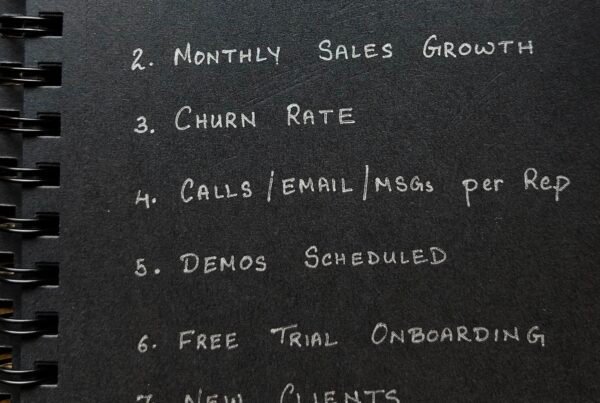 2. MONTHLY SALES GROWTH
3. CHURN RATE
4. CALLS/EMAIL/MSGs per Rep
5. DEMOS SCHEDULED
6. FREE TRIAL ONBOARDING
7. NEW CLIENTS